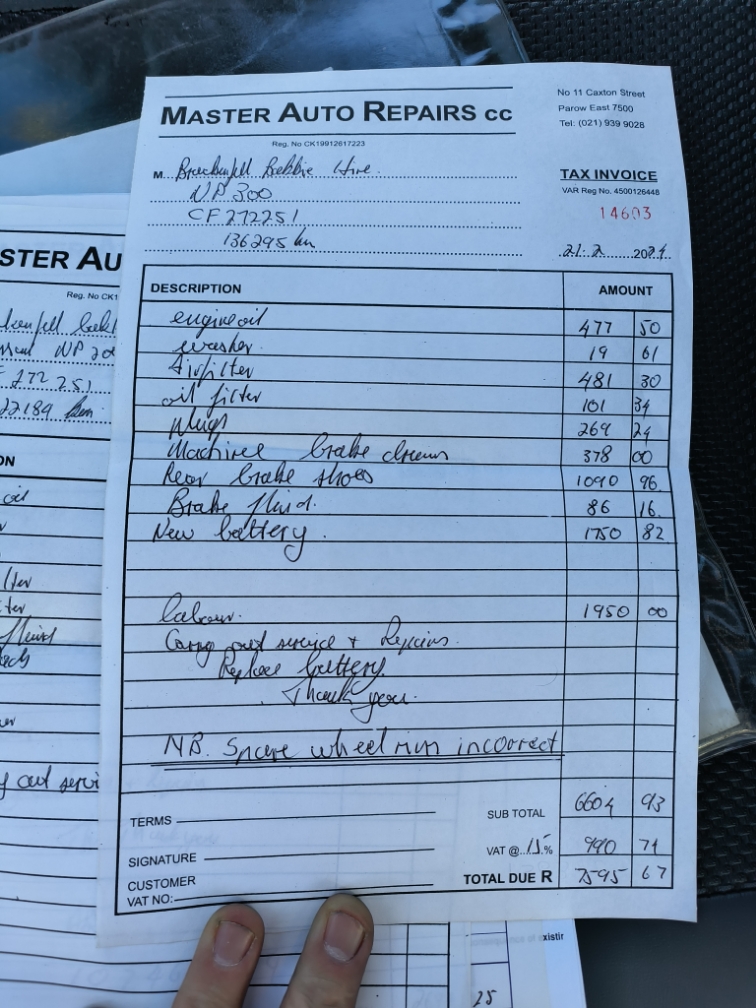 MASTER AUTO REPAIRS CC
No 11 Caxton Street
Parow East 7500
Tel: (021) 939 9028
Reg. No CK19912617223
M. Brackenfell Bakkie Hire.
NP 300
CF 272251
136295 km
TAX INVOICE
VAR Reg No. 4500126448
14603
21.2 2024
DESCRIPTION AMOUNT
engine oil 477 50
washer 19 61
Airfilter 481 30
oil filter 101 34
plugs 269 24
Machined brake drums 378 00
Rear brake shoes 1090 96
Brake fluid. 86 16
New battery. 1750 82
labour. 1950 00
Carry out service + Repairs.
Replace battery.
Thank you.
NB. Spare wheel rim incorrect
TERMS
SUB TOTAL 6604 93
SIGNATURE
VAT @ 15 % 990 74
CUSTOMER
VAT NO:
TOTAL DUE R 7595 67
STER AU
Reg. No CK1
272 251
22189 km
ON
oil
fluid
out servi
existir
25